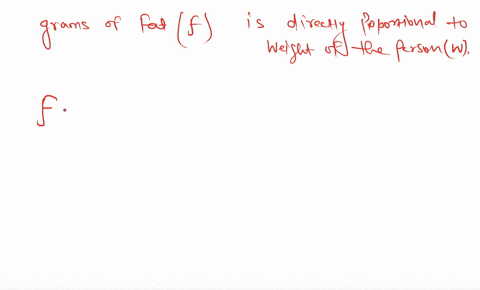 grams of fat (f) is directly proportional to
weight of the person (w).
f